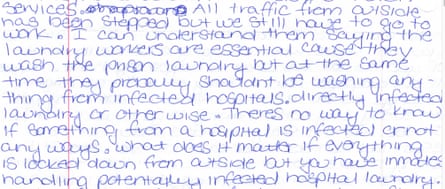 services. All traffic from outside
has been stopped but we still have to go to
work. I can understand them saying the
laundry workers are essential cause they
wash the prison laundry but at the same
time they probably shouldnt be washing any-
thing from infected hospitals. directly infected
laundry or otherwise. Theres no way to know
if something from a hospital is infected or not
any ways. what does it matter if everything
is locked down from outside but you have inmates
handling potentially infected hospital laundry.